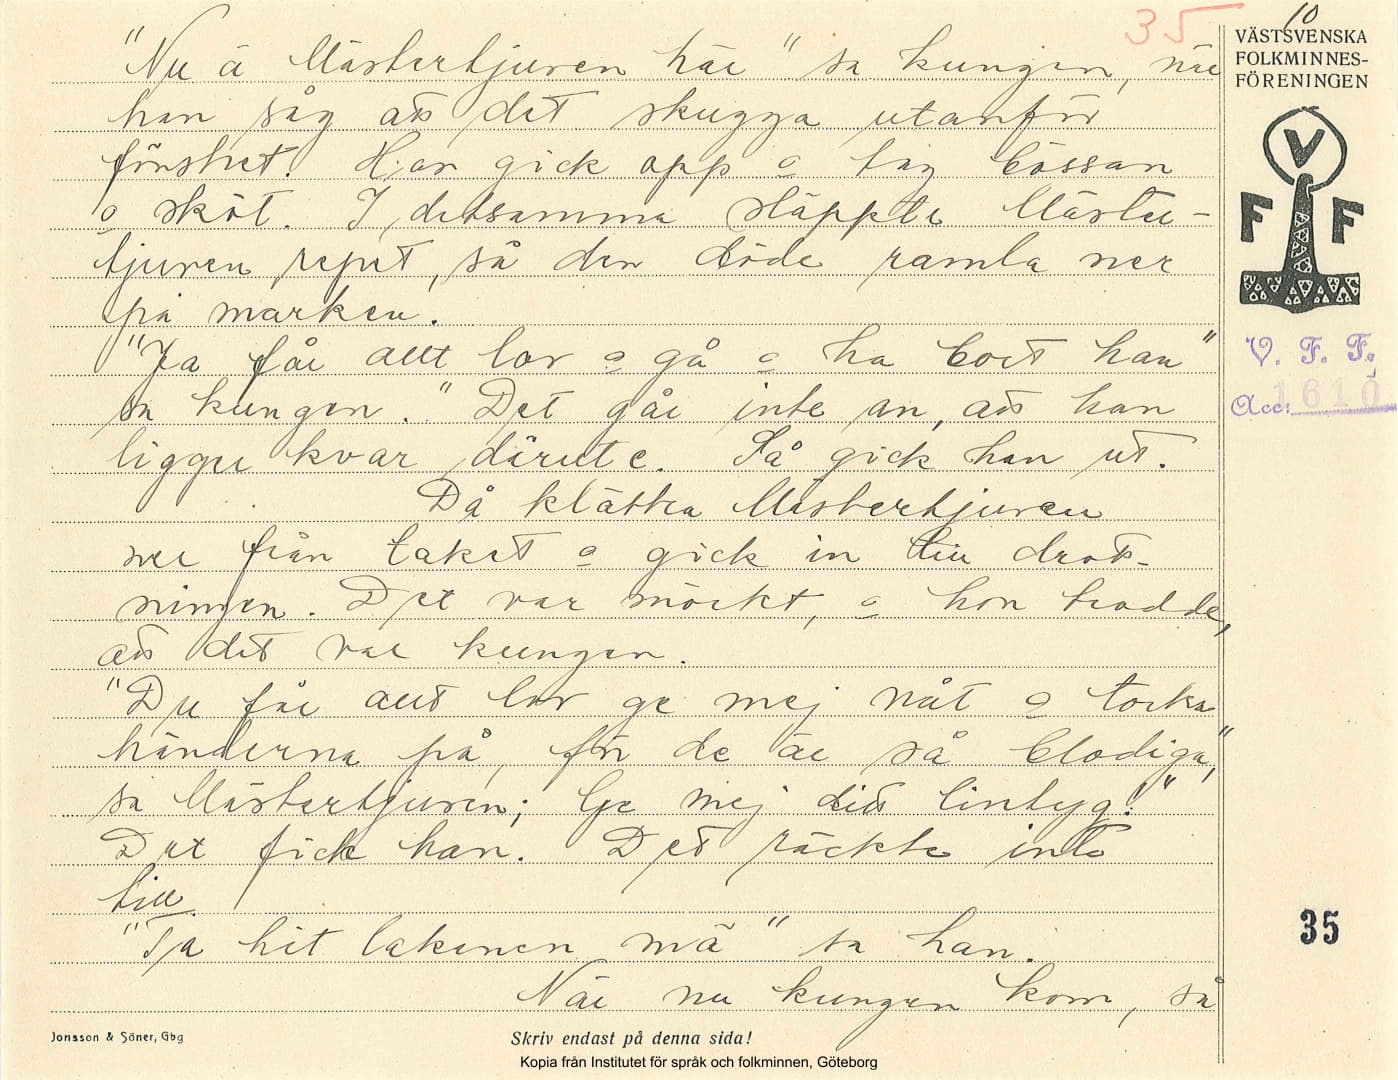 35
10
VÄSTSVENSKA
FOLKMINNES-
FÖRENINGEN
V
F F
V. F. F.
Acc: 1610
"Nu ä Mästertjuven här" sa kungen, när
han såg att det skugga utanför
fönstret. Han gick opp o tog bössan
o sköt. I detsamma släppte Mäster-
tjuven repet, så den döde ramla ner
på marken.
"Ja får allt lov o gå o ha bort han"
sa kungen. "Det går inte an, att han
ligger kvar därute. Så gick han ut.
Då klättra Mästertjuven
ner från taket o gick in till drott-
ningen. Det var mörkt, o hon trodde,
att det var kungen.
"Du får allt lov ge mej nåt o torka
händerna på, för de är så blodiga,"
sa Mästertjuven; Ge mej ditt lintyg!"
Det fick han. Det räckte inte
till.
"Ta hit lakanen mä" sa han.
När nu kungen kom, så
35
Jonsson & Söner, Gbg
Skriv endast på denna sida!
Kopia från Institutet för språk och folkminnen, Göteborg